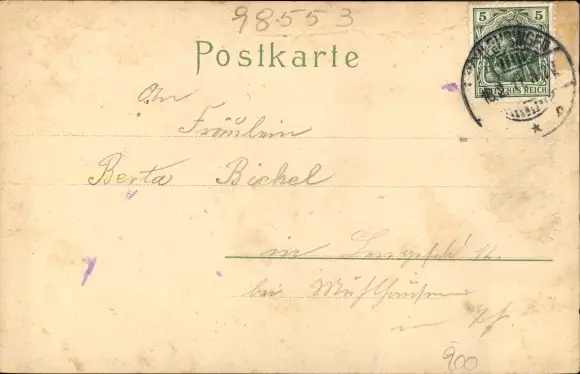 98553
Postkarte
5 5
DEUTSCHES REICH
An
Fräulein
Berta Bickel
in
bei Mühlhausen
in
900